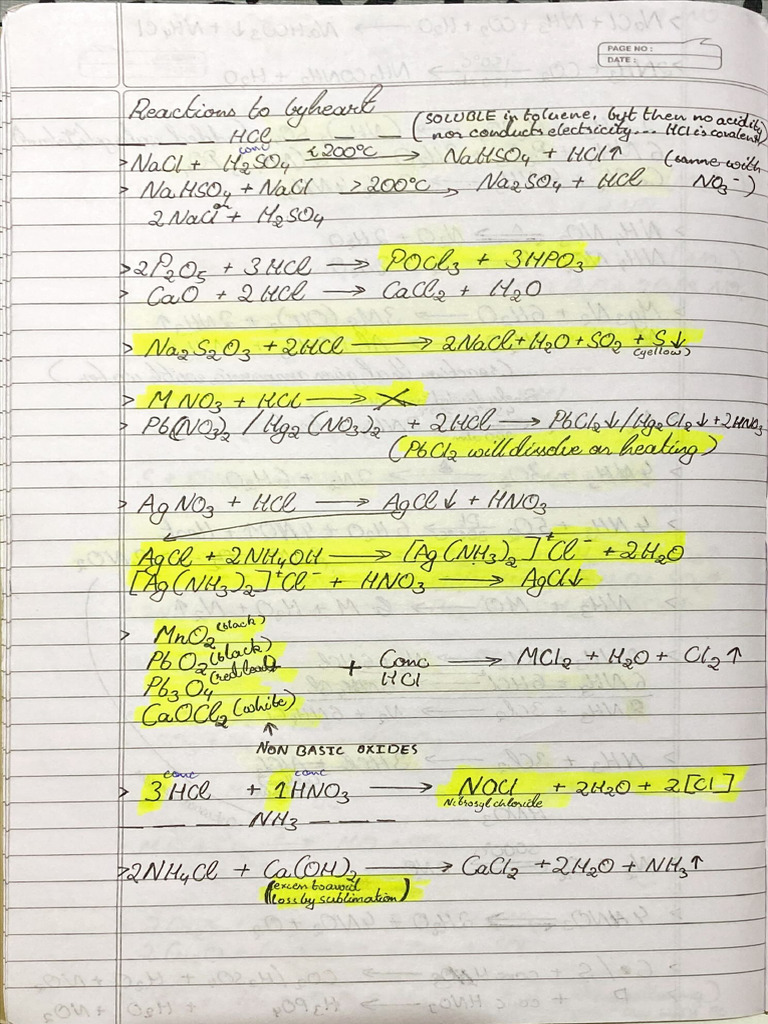 PAGE NO :
DATE :
Reactions to byheart
_ _ _ _ HCl _ _ _ _ (SOLUBLE in toluene, byt then no acidity
nor conducts electricity... HCl is covalent)
> NaCl + H₂SO₄ (conc) <200°C ⟶ NaHSO₄ + HCl↑ (same with
> NaHSO₄ + NaCl >200°C ⟶ Na₂SO₄ + HCl NO₃⁻)
or
2NaCl + H₂SO₄
> 2P₂O₅ + 3HCl ⟶ POCl₃ + 3HPO₃
> CaO + 2HCl ⟶ CaCl₂ + H₂O
> Na₂S₂O₃ + 2HCl ⟶ 2NaCl + H₂O + SO₂ + S↓
(yellow)
> MNO₃ + HCl ⟶ X
> Pb(NO₃)₂ / Hg₂(NO₃)₂ + 2HCl ⟶ PbCl₂↓/Hg₂Cl₂↓ + 2HNO₃
(PbCl₂ will dissolve on heating)
> AgNO₃ + HCl ⟶ AgCl↓ + HNO₃
AgCl + 2NH₄OH ⟶ [Ag(NH₃)₂]⁺Cl⁻ + 2H₂O
[Ag(NH₃)₂]⁺Cl⁻ + HNO₃ ⟶ AgCl↓
> MnO₂ (black)
PbO₂ (black)
Pb₃O₄ (red lead) + Conc HCl ⟶ MCl₂ + H₂O + Cl₂↑
CaOCl₂ (white)
↑
NON BASIC OXIDES
> 3HCl (conc) + 1HNO₃ (conc) ⟶ NOCl + 2H₂O + 2[Cl]
Nitrosyl chloride
_ _ _ _ NH₃ _ _ _ _
> 2NH₄Cl + Ca(OH)₂ ⟶ CaCl₂ + 2H₂O + NH₃↑
(excess to avoid
loss by sublimation)